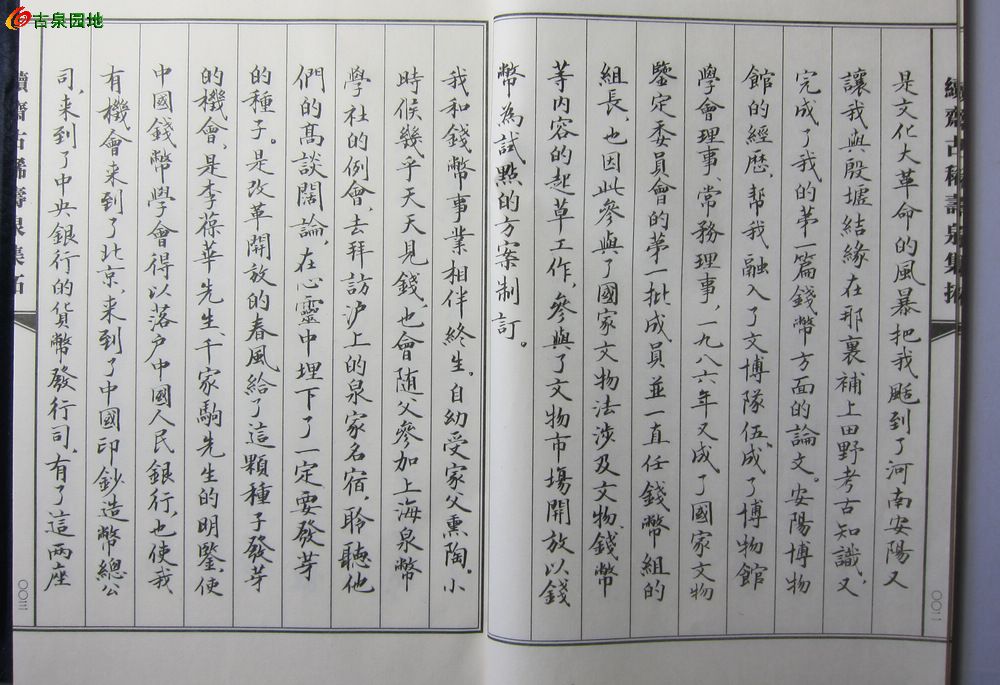 古泉园地
續齋古稀壽泉集拓
〇〇二
是文化大革命的風暴把我颳到了河南安陽又
讓我與殷墟結緣在那裏補上田野考古知識又
完成了我的第一篇錢幣方面的論文。安陽博物
館的經歷,幫我融入了文博隊伍,成了博物館
學會理事、常務理事,一九八六年又成了國家文物
鑒定委員會的第一批成員並一直任錢幣組的
組長,也因此參與了國家文物法涉及文物、錢幣
等內容的起草工作,參與了文物市場開放以錢
幣為試點的方案制訂。
我和錢幣事業相伴終生。自幼受家父熏陶。小
時候幾乎天天見錢,也會随父參加上海泉幣
學社的例會,去拜訪沪上的泉家名宿,聆聽他
們的高談闊論,在心靈中埋下了一定要發芽
的種子。是改革開放的春風給了這顆種子發芽
的機會,是李葆華先生、千家駒先生的明鑒,使
中國錢幣學會得以落户中國人民銀行,也使我
有機會来到了北京,来到了中國印鈔造幣總公
司,来到了中央銀行的貨幣發行司,有了這两座
續齋古稀壽泉集拓
〇〇三